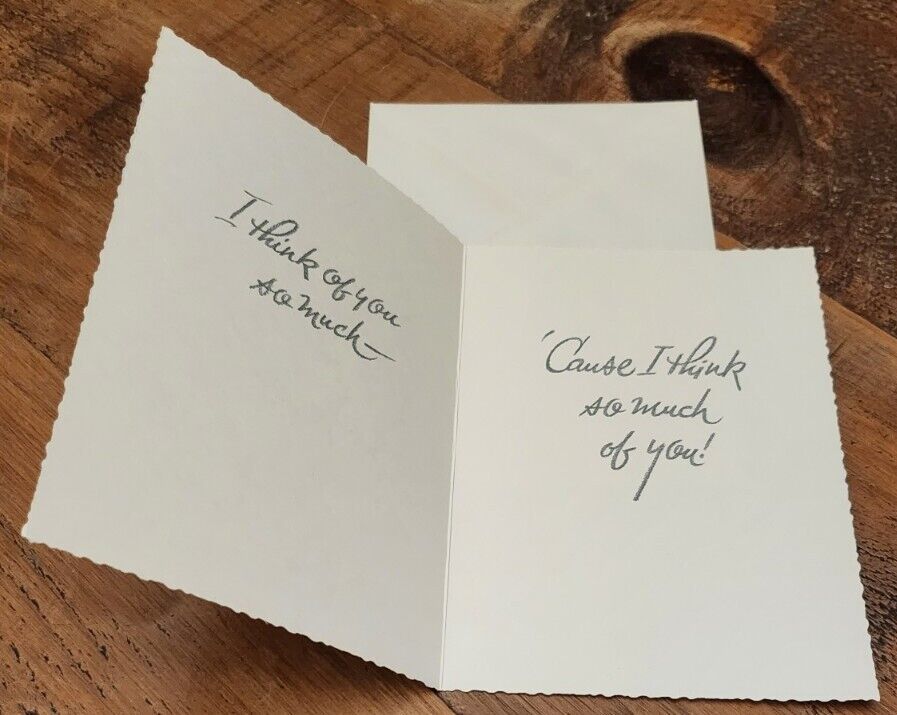 I think of you
so much—
'Cause I think
so much
of you!